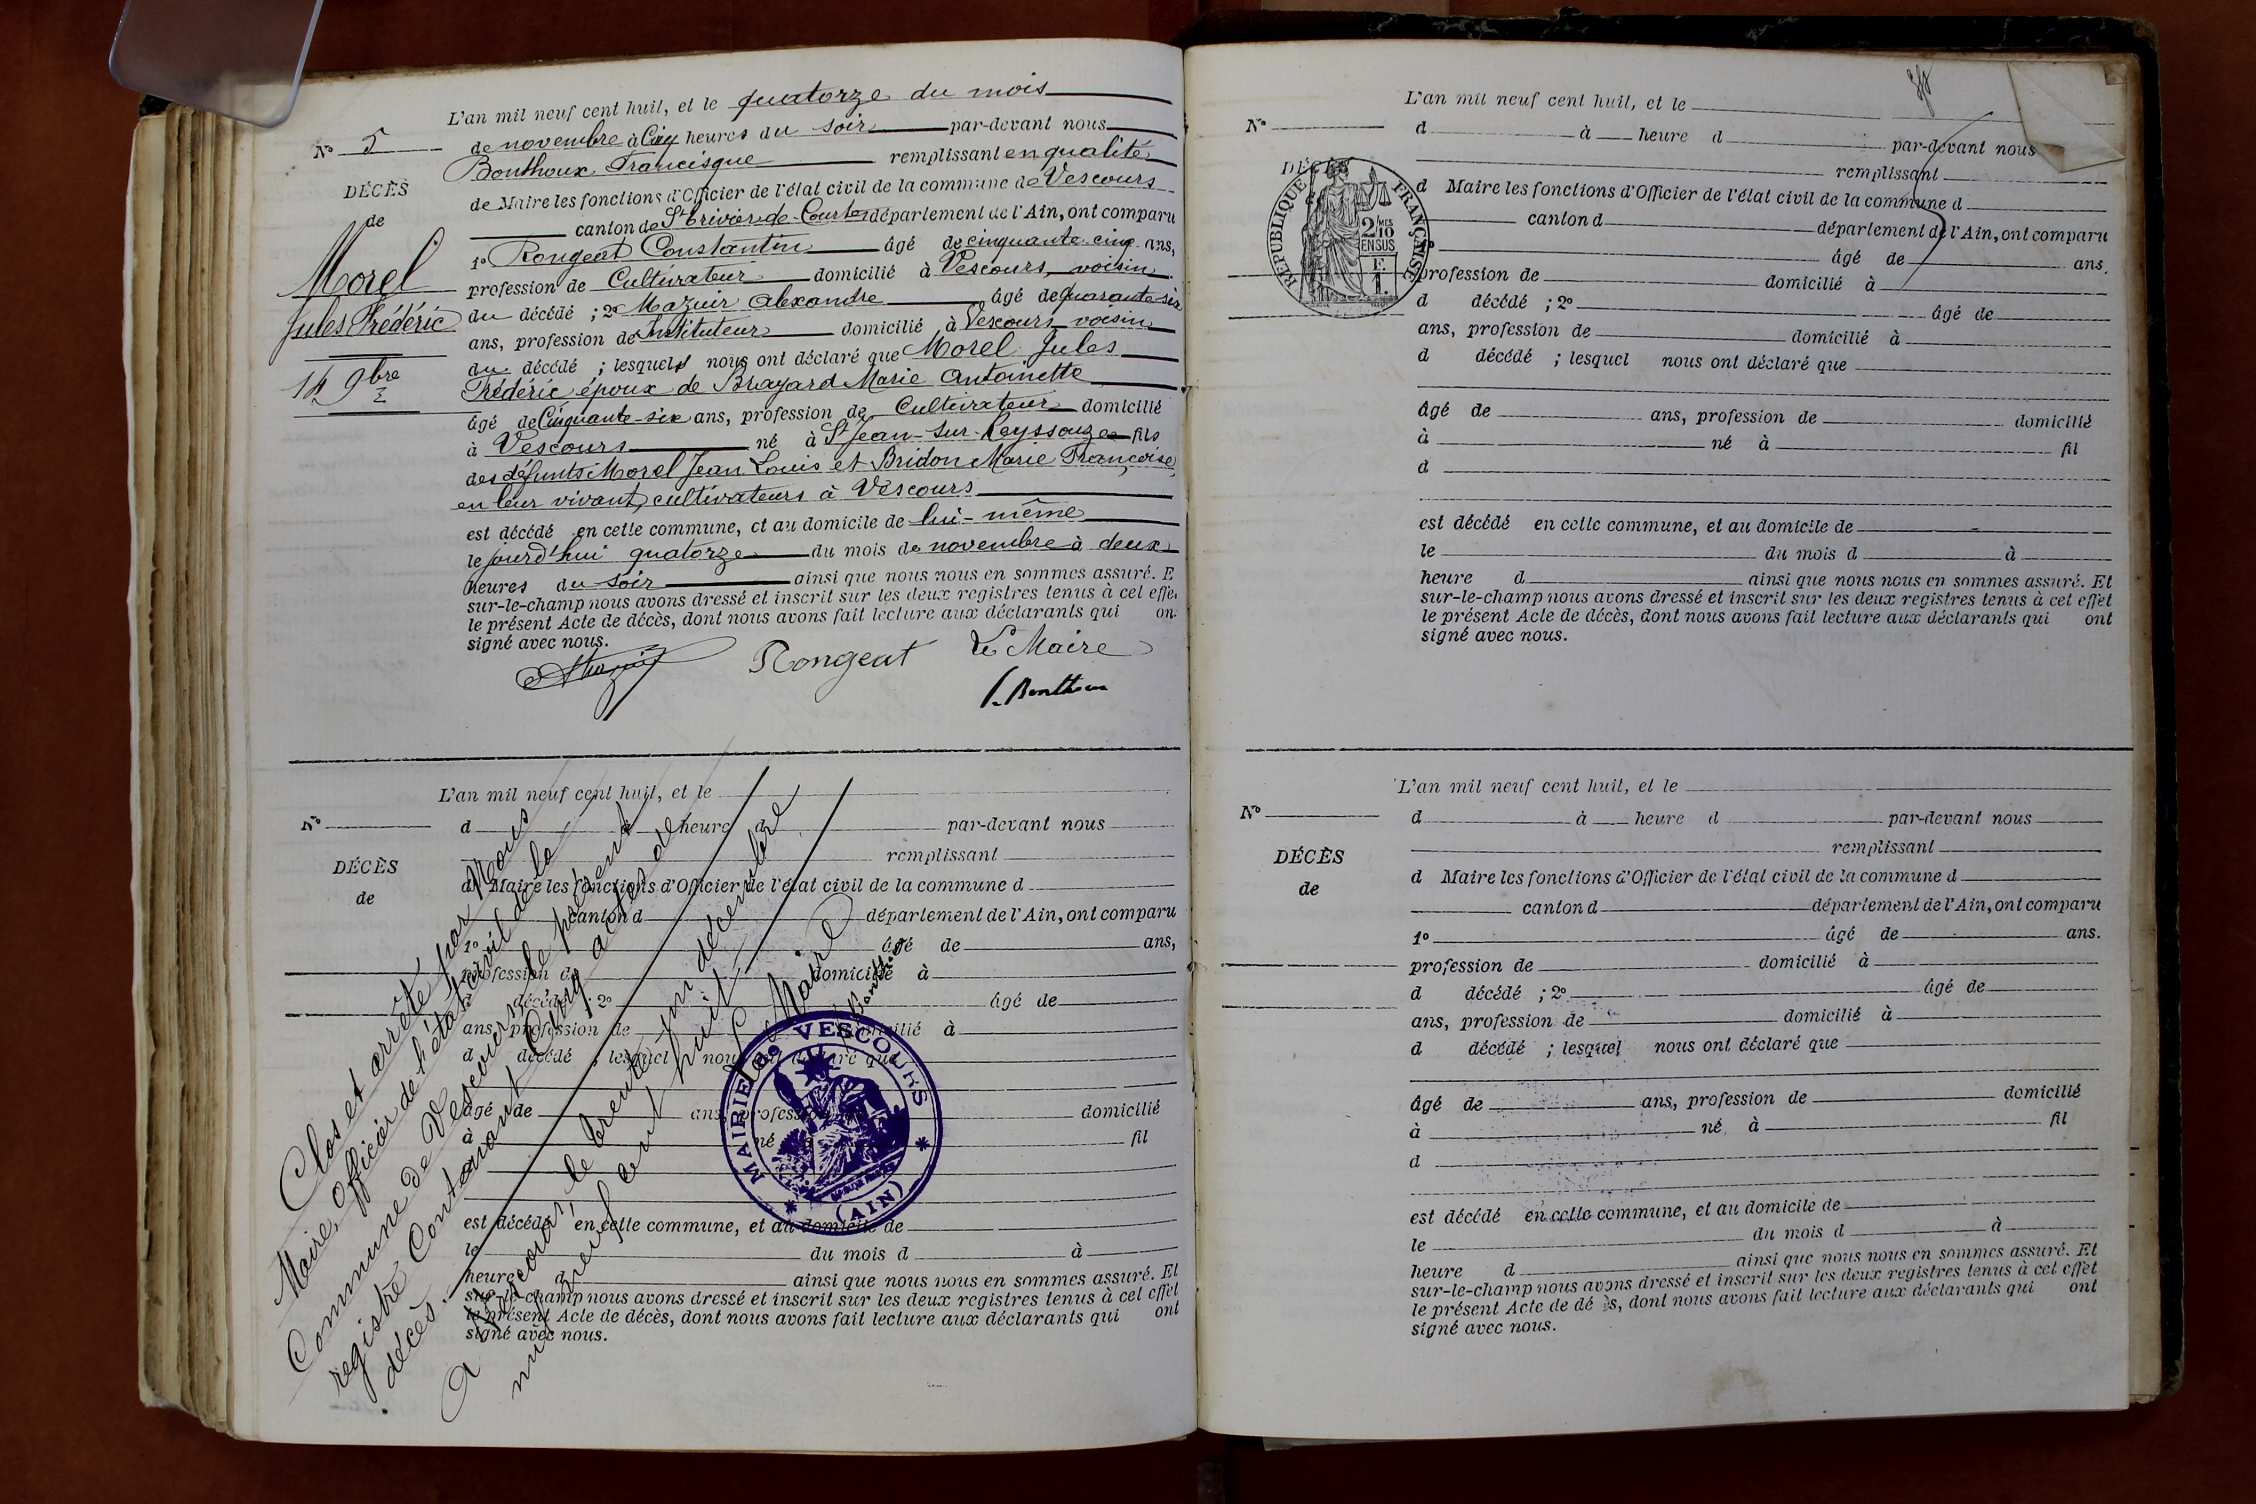 L'an mil neuf cent huit, et le quatorze du mois
No 5
de novembre à Cinq heures du soir par-devant nous
Bonthoux Francisque remplissant en qualité
DÉCÈS
de Maire les fonctions d'Officier de l'état civil de la commune de Vescours
de
canton de St Trivier-de-Courtes département de l'Ain, ont comparu
1o Rongeat Constantin âgé de cinquante-cinq ans,
Morel
profession de Cultivateur domicilié à Vescours, voisin
Jules Frédéric
du décédé ; 2o Mazuir Alexandre âgé de quarante-six
ans, profession de Instituteur domicilié à Vescours voisin
du décédé ; lesquels nous ont déclaré que Morel Jules
14 9bre
Frédéric époux de Brayard Marie Antoinette
âgé de Cinquante-six ans, profession de Cultivateur domicilié
à Vescours né à St Jean-sur-Reyssouze fils
des défunts Morel Jean Louis et Bridon Marie Françoise,
en leur vivant, cultivateurs à Vescours
est décédé en cette commune, et au domicile de lui-même
le jourd'hui quatorze du mois de novembre à deux
heures du soir ainsi que nous nous en sommes assuré. E
sur-le-champ nous avons dressé et inscrit sur les deux registres tenus à cet effe
le présent Acte de décès, dont nous avons fait lecture aux déclarants qui on
signé avec nous.
Rongeat Le Maire
F. Bonthoux
L'an mil neuf cent huit, et le
No
d à heure d par-devant nous
remplissant
DÉCÈS
d Maire les fonctions d'Officier de l'état civil de la commune d
de
canton d département de l'Ain, ont comparu
1o âgé de ans,
profession de domicilié à
d décédé ; 2o âgé de
ans, profession de domicilié à
d décédé ; lesquel nous ont déclaré que
âgé de ans, profession de domicilié
à né à fil
est décédé en cette commune, et au domicile de
le du mois d à
heure d ainsi que nous nous en sommes assuré. Et
sur-le-champ nous avons dressé et inscrit sur les deux registres tenus à cet effet
le présent Acte de décès, dont nous avons fait lecture aux déclarants qui ont
signé avec nous.
Clos et arrêté par Nous
Maire, officier de l'état civil de la
Commune de Vescours, le présent
registre Contenant Cinq actes de
décès.
A Vescours, le trente un décembre
mil neuf cent huit
Le Maire
F. Bonthoux
MAIRIE DE VESCOURS
(AIN)
L'an mil neuf cent huit, et le
No
d à heure d par-devant nous
remplissant
DÉCÈS
d Maire les fonctions d'Officier de l'état civil de la commune d
canton d département de l'Ain, ont comparu
âgé de ans.
profession de domicilié à
d décédé ; 2o âgé de
ans, profession de domicilié à
d décédé ; lesquel nous ont déclaré que
âgé de ans, profession de domicilié
à né à fil
d
est décédé en cette commune, et au domicile de
le du mois d à
heure d ainsi que nous nous en sommes assuré. Et
sur-le-champ nous avons dressé et inscrit sur les deux registres tenus à cet effet
le présent Acte de décès, dont nous avons fait lecture aux déclarants qui ont
signé avec nous.
RÉPUBLIQUE FRANÇAISE
2 MES
10
EN SUS
F.
1.
L'an mil neuf cent huit, et le
No
d à heure d par-devant nous
remplissant
DÉCÈS
d Maire les fonctions d'Officier de l'état civil de la commune d
de
canton d département de l'Ain, ont comparu
1o âgé de ans.
profession de domicilié à
d décédé ; 2o âgé de
ans, profession de domicilié à
d décédé ; lesquel nous ont déclaré que
âgé de ans, profession de domicilié
à né à fil
d
est décédé en cette commune, et au domicile de
le du mois d à
heure d ainsi que nous nous en sommes assuré. Et
sur-le-champ nous avons dressé et inscrit sur les deux registres tenus à cet effet
le présent Acte de dé ès, dont nous avons fait lecture aux déclarants qui ont
signé avec nous.